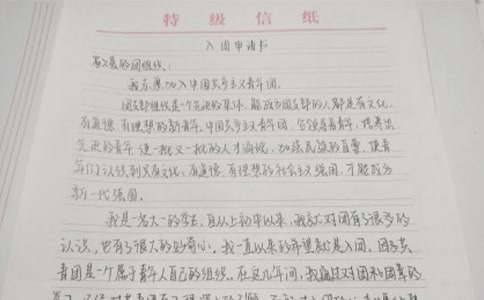 特级信纸
入团申请书
敬爱的团组织：
我志愿加入中国共产主义青年团。
团支部组织是一个先进的集体，能成为团支部的人都是有文化、
有道德、有理想的新青年。中国共产主义青年团，
先进的青年，使一批又一批的人才涌现，加强民族的
认识到有文化、有道德、有理想的社会主义强国，才能成为
新一代强国。
我是一名大一的学生，自从上初中以来，我就对团有了很多的
认识，也有了很大的好奇心。我一直以来的希望就是入团。团
青团是一个属于青年人自己的组织。在这几年间，我通过对团和团章的